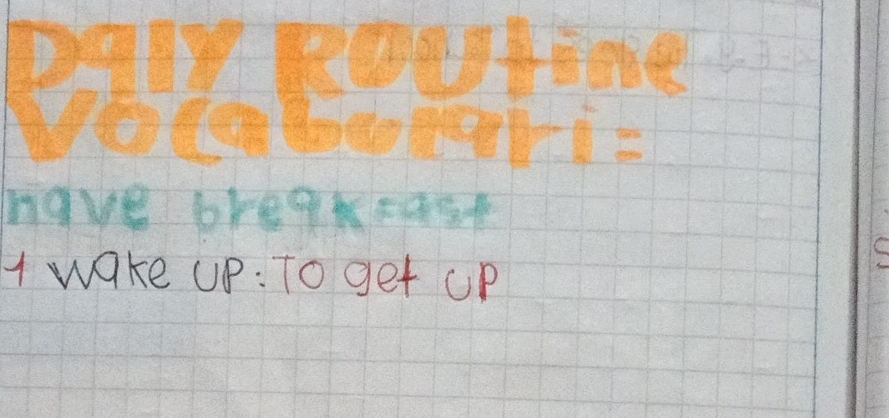 Daly Routine
Vocaborari=
have breakfast
1 wake up: To get up